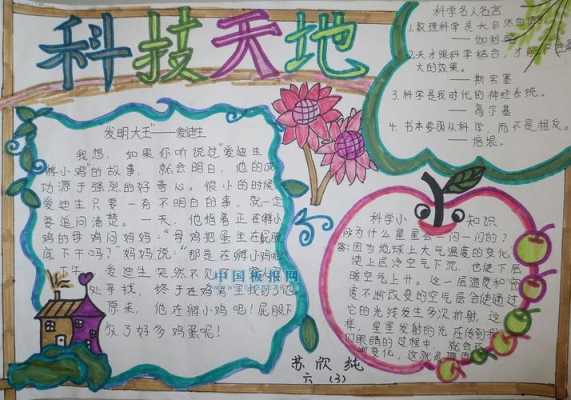 科技天地
发明大王"——爱迪生
我想,如果你听说过"爱迪生
孵小鸡"的故事,就会明白,他的成
功源于强烈的好奇心。很小的时候
爱迪生只要一有不明白的事,就一定
要追问清楚。一天,他指着正在孵小
鸡的母鸡问妈妈:"母鸡把蛋坐在屁股
底下干吗?"妈妈说:"那是在孵小鸡
午,爱迪生突然不见
处寻找,终于在鸡窝里找到了他
原来,他在孵小鸡呢!屁股下
放了好多鸡蛋呢!
中国板报网
科学名人名言
1.数理科学是大自然
——伽利略
2.天才跟科学结合,才能
大的效果。
——斯宾塞
3.科学是我时代的神经系统。
——高尔基
4.书本要服从科学,而不是相反。
——培根。
科学小知识
为什么星星会一闪一闪的?
答:因为地球上大气温度的变化
使上层冷空气下沉,也使下层
暖空气上升。这一层温度和密
度不断改变的空气层会使通过
它的光线发生多次折射,这
样,星星发射的光在传到
们眼睛的过程中,就会
变化,这就是
苏欣纯
六(3)